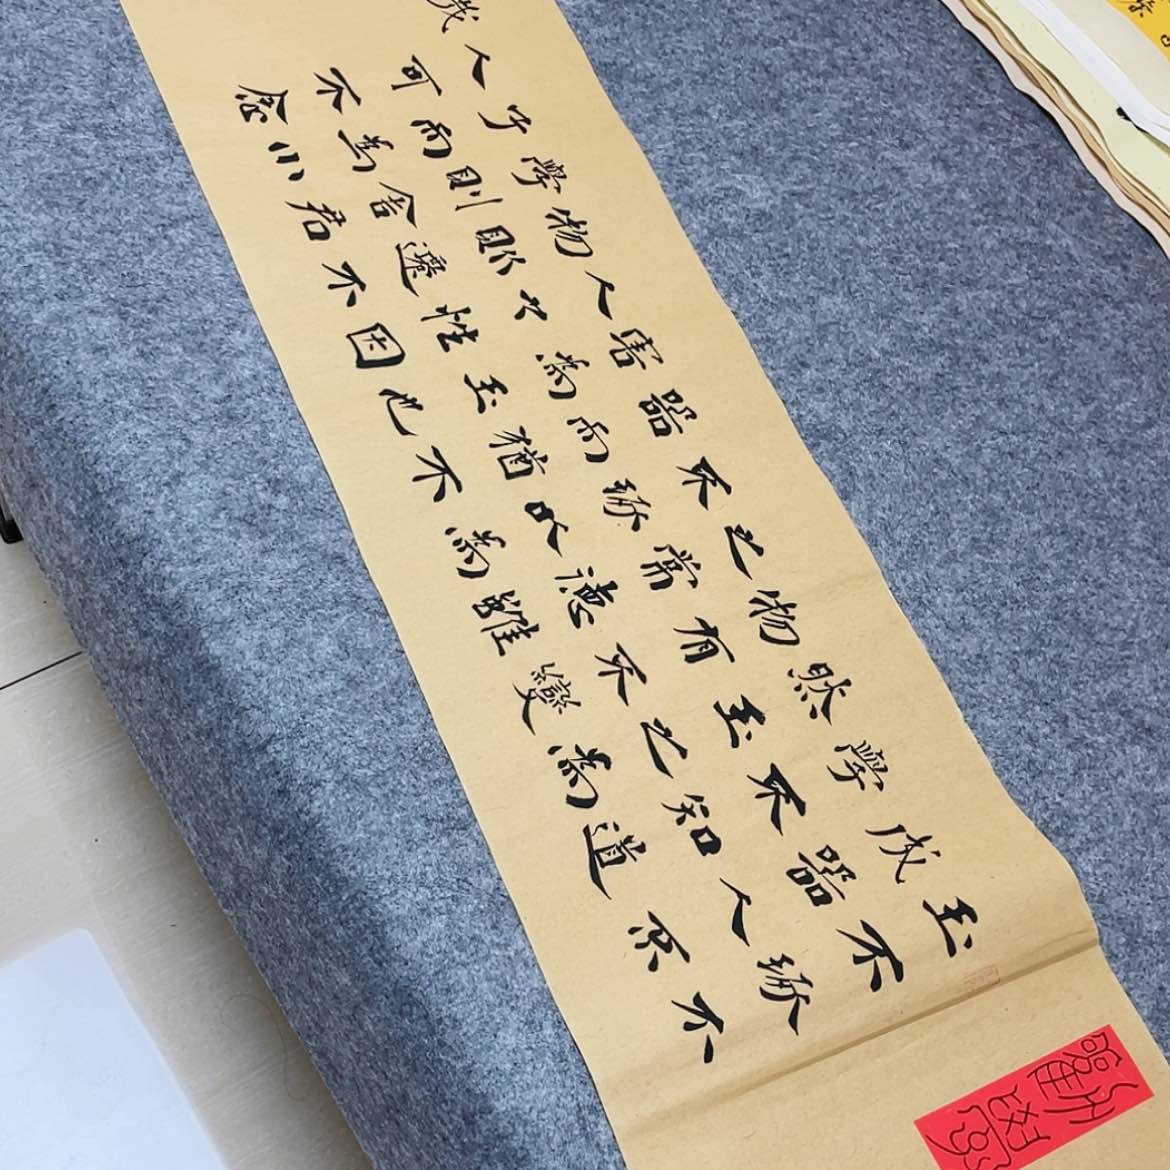 玉不琢不
成器人不
學不知道
然玉之為
物有不變
之常德雖
不琢以為
器而猶不
害為玉也
人之性因
物則遷不
學則舍君
子而為小
人可不念
哉